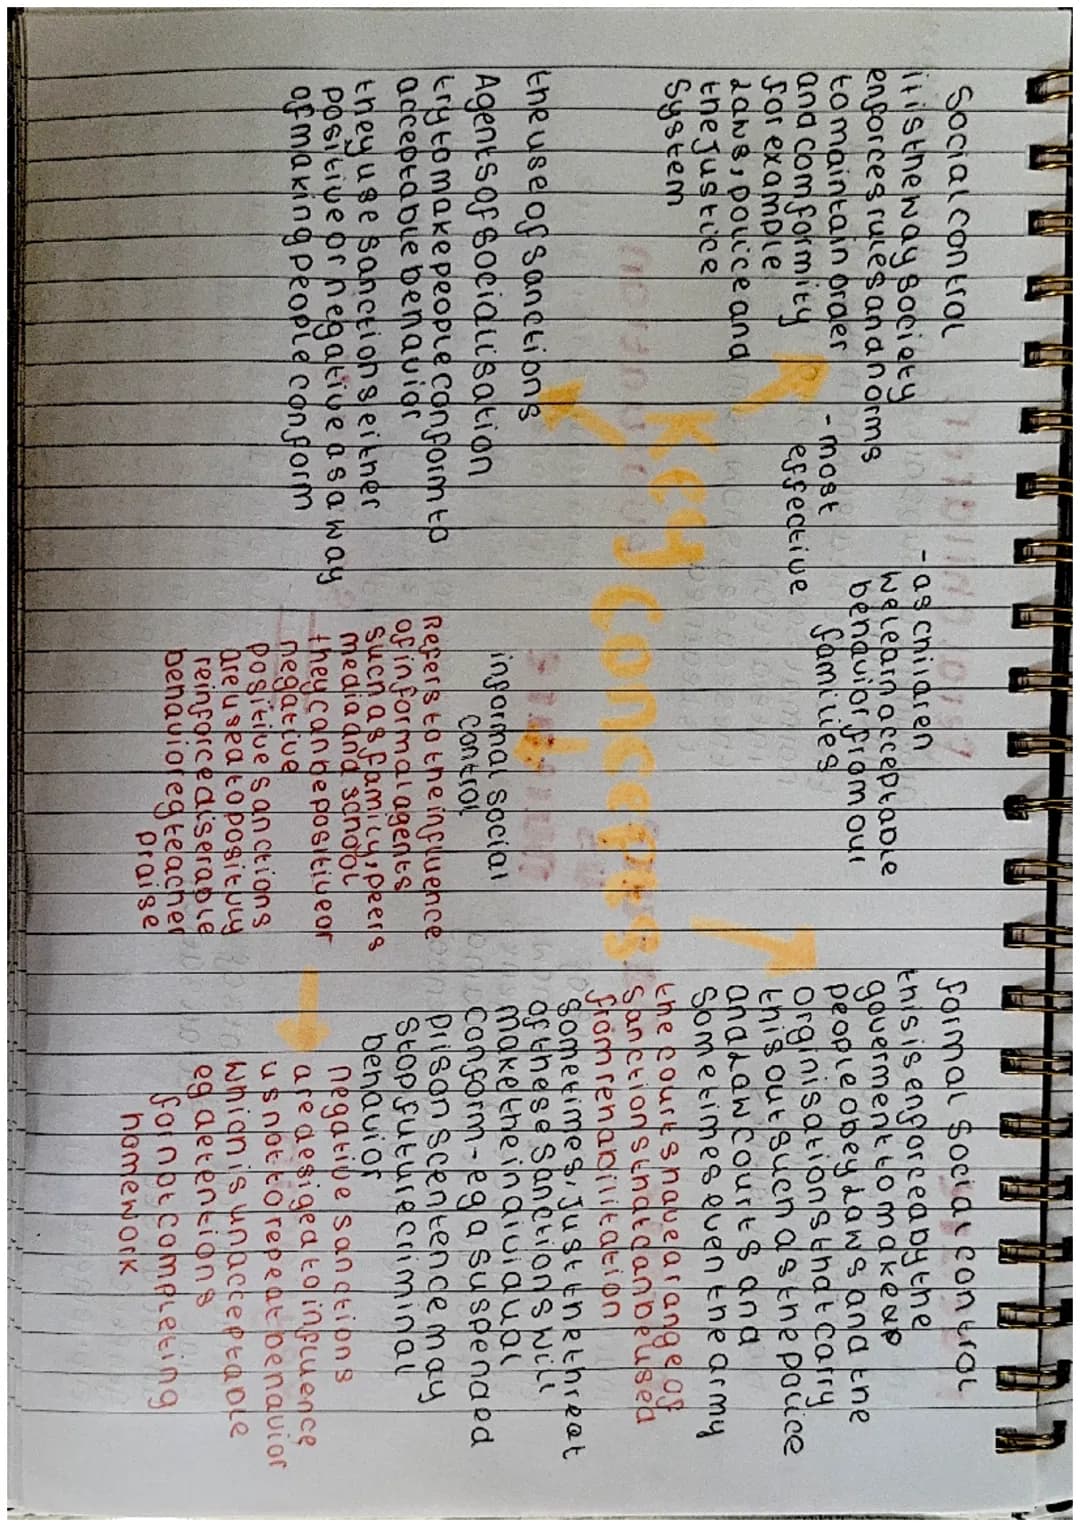 Key concepts
Social control
it is the way society
enforces rules and norms
to maintain order
and comformity
for example
Laws, police and
the justice
System
- as children
we learn acceptable
behavior from our
families
- most
effective
formal social control
this is enforced by the
goverment to make up
people obey Laws and the
orginisations that carry
this out such as the police
and Law courts and
Sometimes even the army
the courts have a range of
sanctions that can be used
from rehabilitation
Sometimes, Just the threat
of these sanctions will
make the individual
conform - eg a suspended
Prison scentence may
Stop future criminal
behavior
the use of sanctions
Agents of socialisation
try to make people conform to
acceptable behavior
they use sanctions either
positive or negative as a way
of making people conform
informal social
control
Refers to the influence
of informal agents
such as family, peers
media and school
they can be positive or
negative
positive sanctions
are used to posituly
reinforce diserable
behavior eg teacher
praise
negative sanctions
are desiged to influence
us not to repeat behavior
which is unacceptable
eg detentions
for not completing
homework